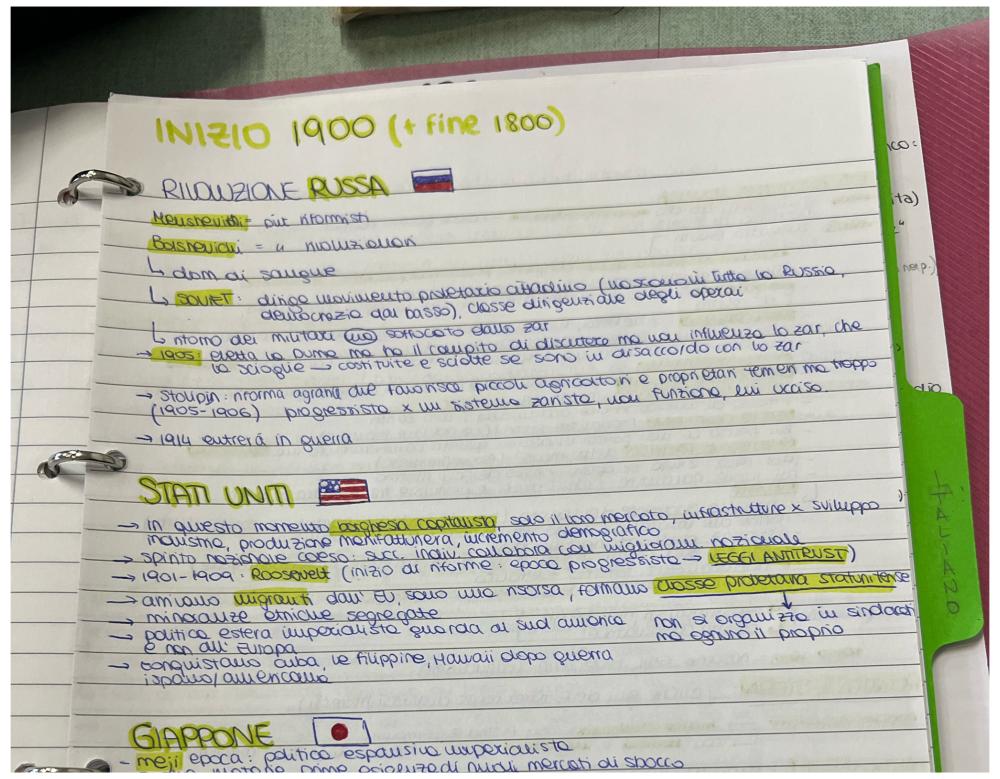 INIZIO 1900 (+ fine 1800)
RIVOLUZIONE RUSSA
Menshevichi = più riformisti
Bolshevichi = " rivoluzionari
↳ dom di sangue
↳ SOVIET: dirige movimento proletario cittadino (nascono in tutta la Russia,
democrazia dal basso), classe dirigenziale degli operai
↳ ritorno dei militari soffocato dallo zar
→ 1905: eletta la Duma ma ha il compito di discutere ma non influenza lo zar, che
la scioglie → costituite e sciolte se sono in disaccordo con lo zar
→ Stolipin: riforma agraria che favorisce piccoli agricoltori e proprietari terrieri ma troppo
(1905-1906) progressista x un sistema zarista, non funziona, lui ucciso.
→ 1914 entrerà in guerra
STATI UNITI
→ in questo momento borghesia capitalista, solo il loro mercato, infrastrutture x sviluppo
industria, produzione manifatturiera, incremento demografico
→ spirito nazionale coeso: succ. indiv. collabora con miglioram. nazionale
→ 1901-1909: Roosevelt (inizio di riforme: epoca progressista → LEGGI ANTITRUST)
→ arrivano migranti dall'EU, sono una risorsa, formano classe proletaria statunitense
→ minoranze etniche segregate
→ politica estera imperialista guarda al sud america
e non all'Europa
non si organizza in sindacati
ma ognuno il proprio
→ conquistano cuba, le filippine, Hawaii dopo guerra
ispano/americana
GIAPPONE
- meji epoca: politica espansiva imperialista
materie prime esigenze di nuovi mercati di sbocco
ITALIANO